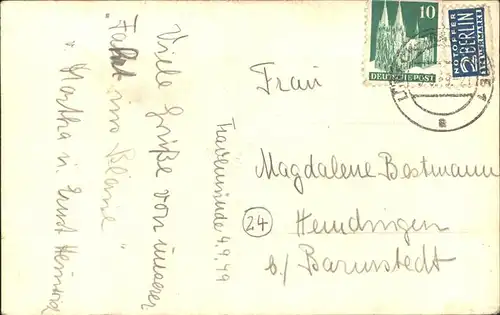 Viele Grüße von unserer
"Fahrt ins Blaue"
v. Martha u. Ernst
Travemünde 4.9.49
10
DEUTSCHE POST
NOTOPFER
2 BERLIN
STEUERMARKE
a
Frau
Magdalene Bestmann
(24) Hemdingen
b./ Barmstedt